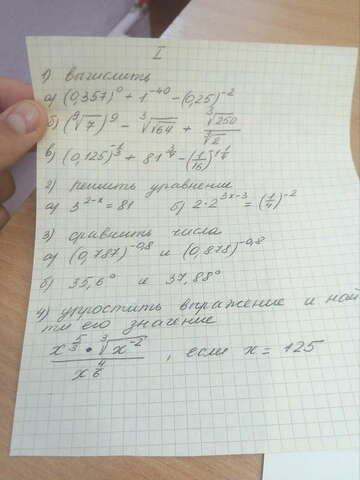 I
1) вычислить
а) (0,357)⁰ + 1⁻⁴⁰ − (0,25)⁻²
б) (³√7)⁹ − ³√164 + ³√250 / ³√2
в) (0,125)^(-1/3) + 81^(3/4) − (1/16)^(1 1/4)
2) решить уравнение
а) 3^(2-x) = 81 б) 2·2^(3x-3) = (1/4)⁻²
3) сравнить числа
а) (0,787)^(-0,8) и (0,878)^(-0,8)
б) 35,6⁰ и 37,88⁰
4) упростить выражение и най
ти его значение
x^(5/3) · ³√x⁻² / x^(4/6) , если x = 125